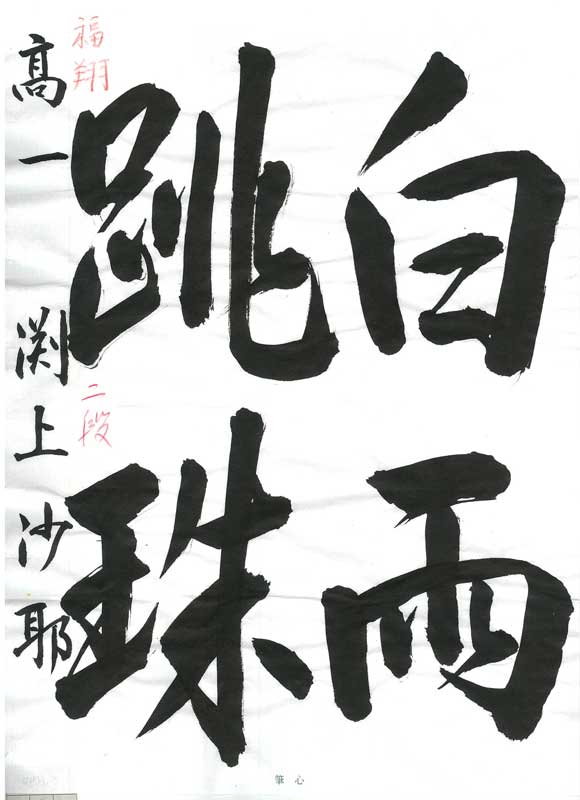 白雨
跳珠
福翔
二段
高一 渕上沙耶
心筆